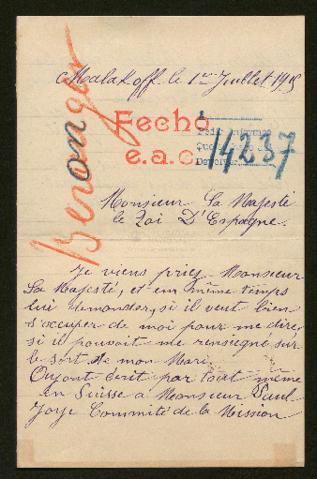 Malakoff le 1er Juillet 1915
Beronger
Fecho
e.a.c.
14237
Monsieur Sa Majesté
le Roi D'Espagne.
Je viens priez Monsieur
Sa Majesté, et em même temps
lui demander, si il veut bien
s'occuper de moi pour me dire,
si il pouvait me renseigne sur
le sort de mon Mari.
Oyant écrit par tout même
en Suisse a Monsieur Paul
Joye Commité de la Mission